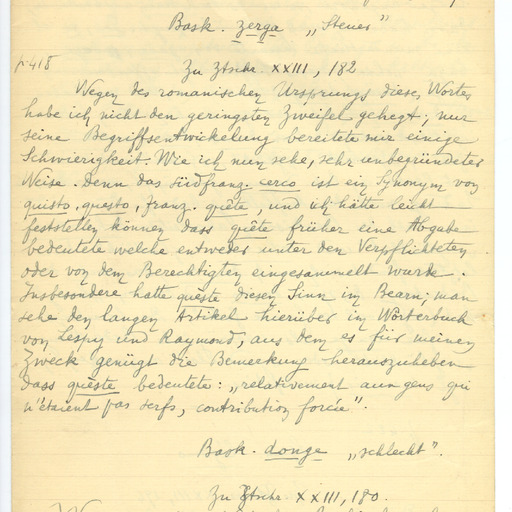 Bask. zerga „Steuer"
p. 418
Zu Ztschr. XXIII, 182
Wegen des romanischen Ursprungs dieses Wortes
habe ich nicht den geringsten Zweifel gehegt; nur
seine Begriffsentwickelung bereitete mir einige
Schwierigkeit. Wie ich nun sehe, sehr unbegründeter
Weise. Denn das südfranz. cerco ist ein Synonym von
quisto, questo, franz. quête, und ich hätte leicht
feststellen können dass quête früher eine Abgabe
bedeutete welche entweder unter den Verpflichteten
oder von dem Berechtigten eingesammelt wurde.
Insbesondere hatte queste diesen Sinn im Bearn; man
sehe den langen Artikel hierüber im Wörterbuch
von Lespy und Raymond, aus dem es für meinen
Zweck genügt die Bemerkung herauszuheben
dass quèste bedeutete: „relativement aux gens qui
n'étaient pas serfs, contribution forcée".
Bask. donge „schlecht".
Zu Ztschr. XXIII, 180.